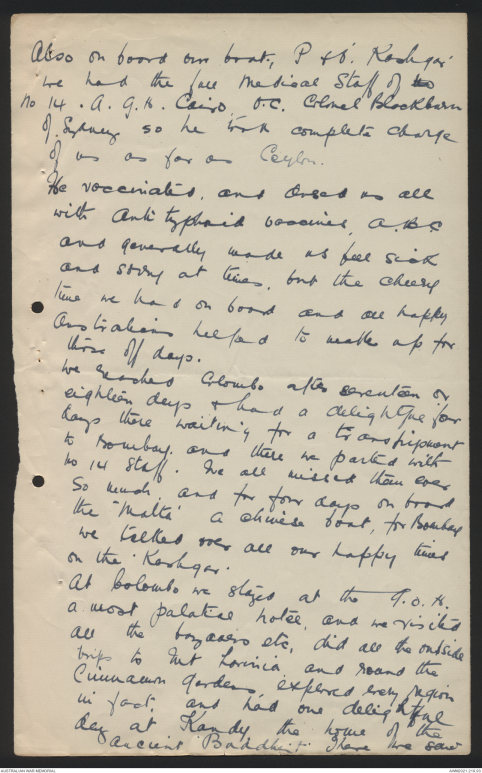 Also on board our boat, P & O. Kashgar
we had the full Medical Staff of
No 14. A. G. H. Cairo O.C. Colonel Blackburn
of Sydney so he took complete charge
of us as far as Ceylon.
He vaccinated, and dosed us all
with Anti typhoid vaccines, A.B.C
and generally made us feel sick
and sorry at times, but the cheery
time we had on board and all happy
Australians helped to make up for
those off days.
We reached Colombo after seventeen or
eighteen days & had a delightful four
days there waiting for a transhipment
to Bombay, and there we parted with
No 14 Staff. We all missed them ever
so much, and for four days on board
the 'Malta' a chinese boat, for Bombay
we talked over all our happy times
on the 'Kashgar.
At Colombo we stayed at the G.O.H.
a most palatial hotel, and we visited
all the bazaars etc, did all the outside
trips to Mt Lavinia and round the
Cinnamon Gardens, explored every region
in fact, and had one delightful
day at Kandy the home of the
ancient Buddhist. There we saw
AUSTRALIAN WAR MEMORIAL